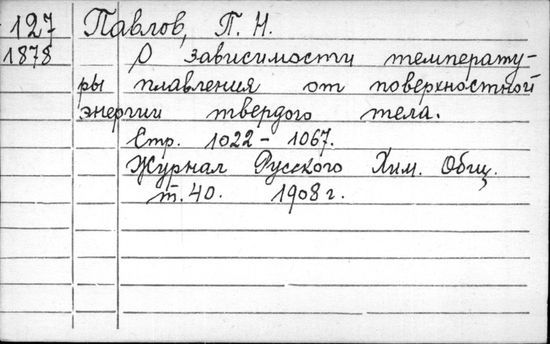 127 Павлов, П. Н.
1878 О зависимости температу-
ры плавления от поверхностной
энергии твердого тела.
Стр. 1022-1067.
Журнал Русского Хим. Общ.
т. 40. 1908 г.